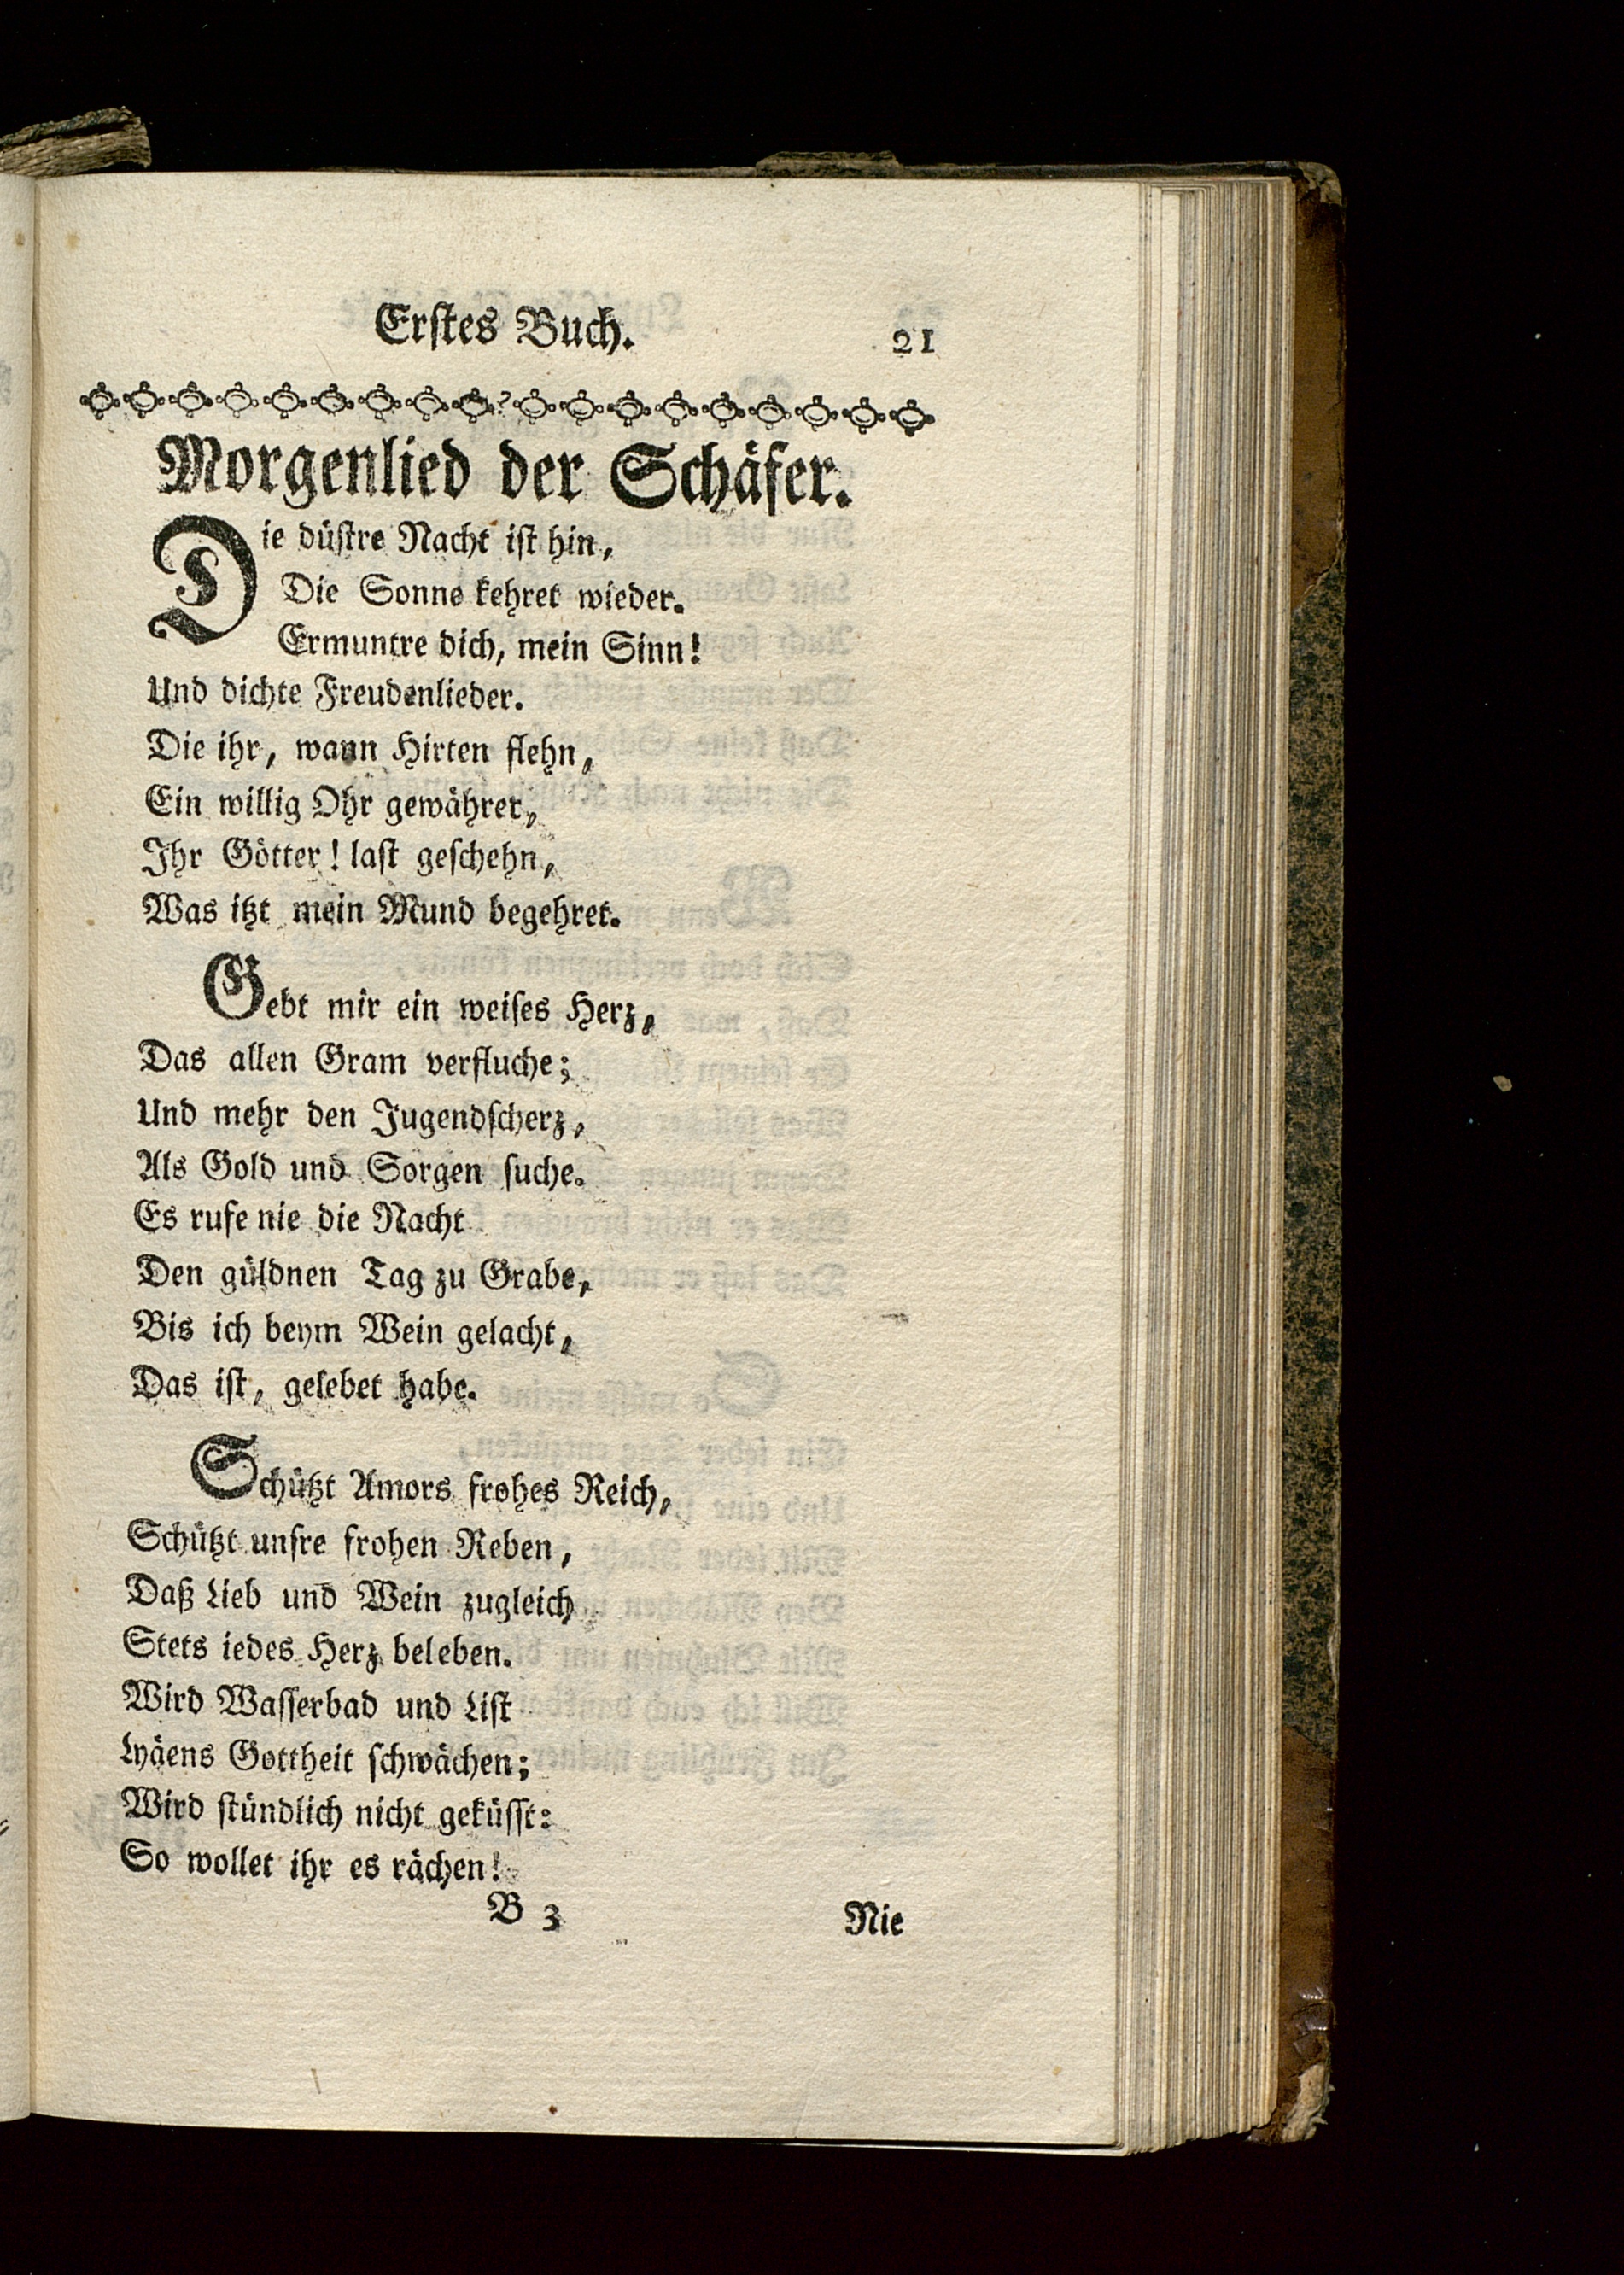 Erſtes Buch. 21
Morgenlied der Schäfer.
Die düſtre Nacht iſt hin,
Die Sonne kehret wieder.
Ermuntre dich, mein Sinn!
Und dichte Freudenlieder.
Die ihr, wann Hirten flehn,
Ein willig Ohr gewähret,
Ihr Götter! laſt geſchehn,
Was itzt mein Mund begehret.
Gebt mir ein weiſes Herz,
Das allen Gram verfluche;
Und mehr den Jugendſcherz,
Als Gold und Sorgen ſuche.
Es rufe nie die Nacht
Den güldnen Tag zu Grabe,
Bis ich beym Wein gelacht,
Das iſt, gelebet habe.
Schützt Amors frohes Reich,
Schützt unſre frohen Reben,
Daß Lieb und Wein zugleich
Stets iedes Herz beleben.
Wird Waſſerbad und Liſt
Lyäens Gottheit ſchwächen;
Wird ſtündlich nicht geküſſt:
So wollet ihr es rächen!
B 3 Nie